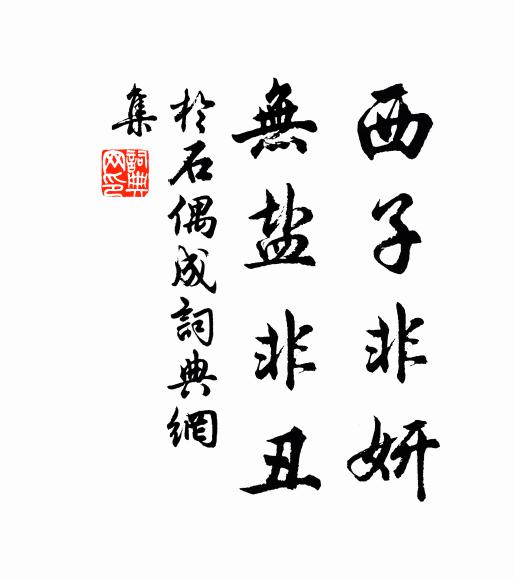 西子非妍
無盐非丑
於石偶成詞典網
集
詞典
网印